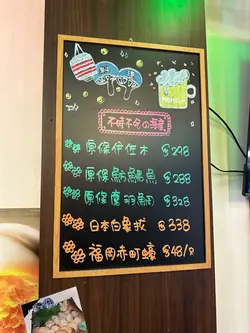 不時不食の海產
原條伊佐木 $298
原條魴鮄魚 $288
原條鷹羽鯛 $328
日本白象拔 $338
福岡赤町蠔 $48/p